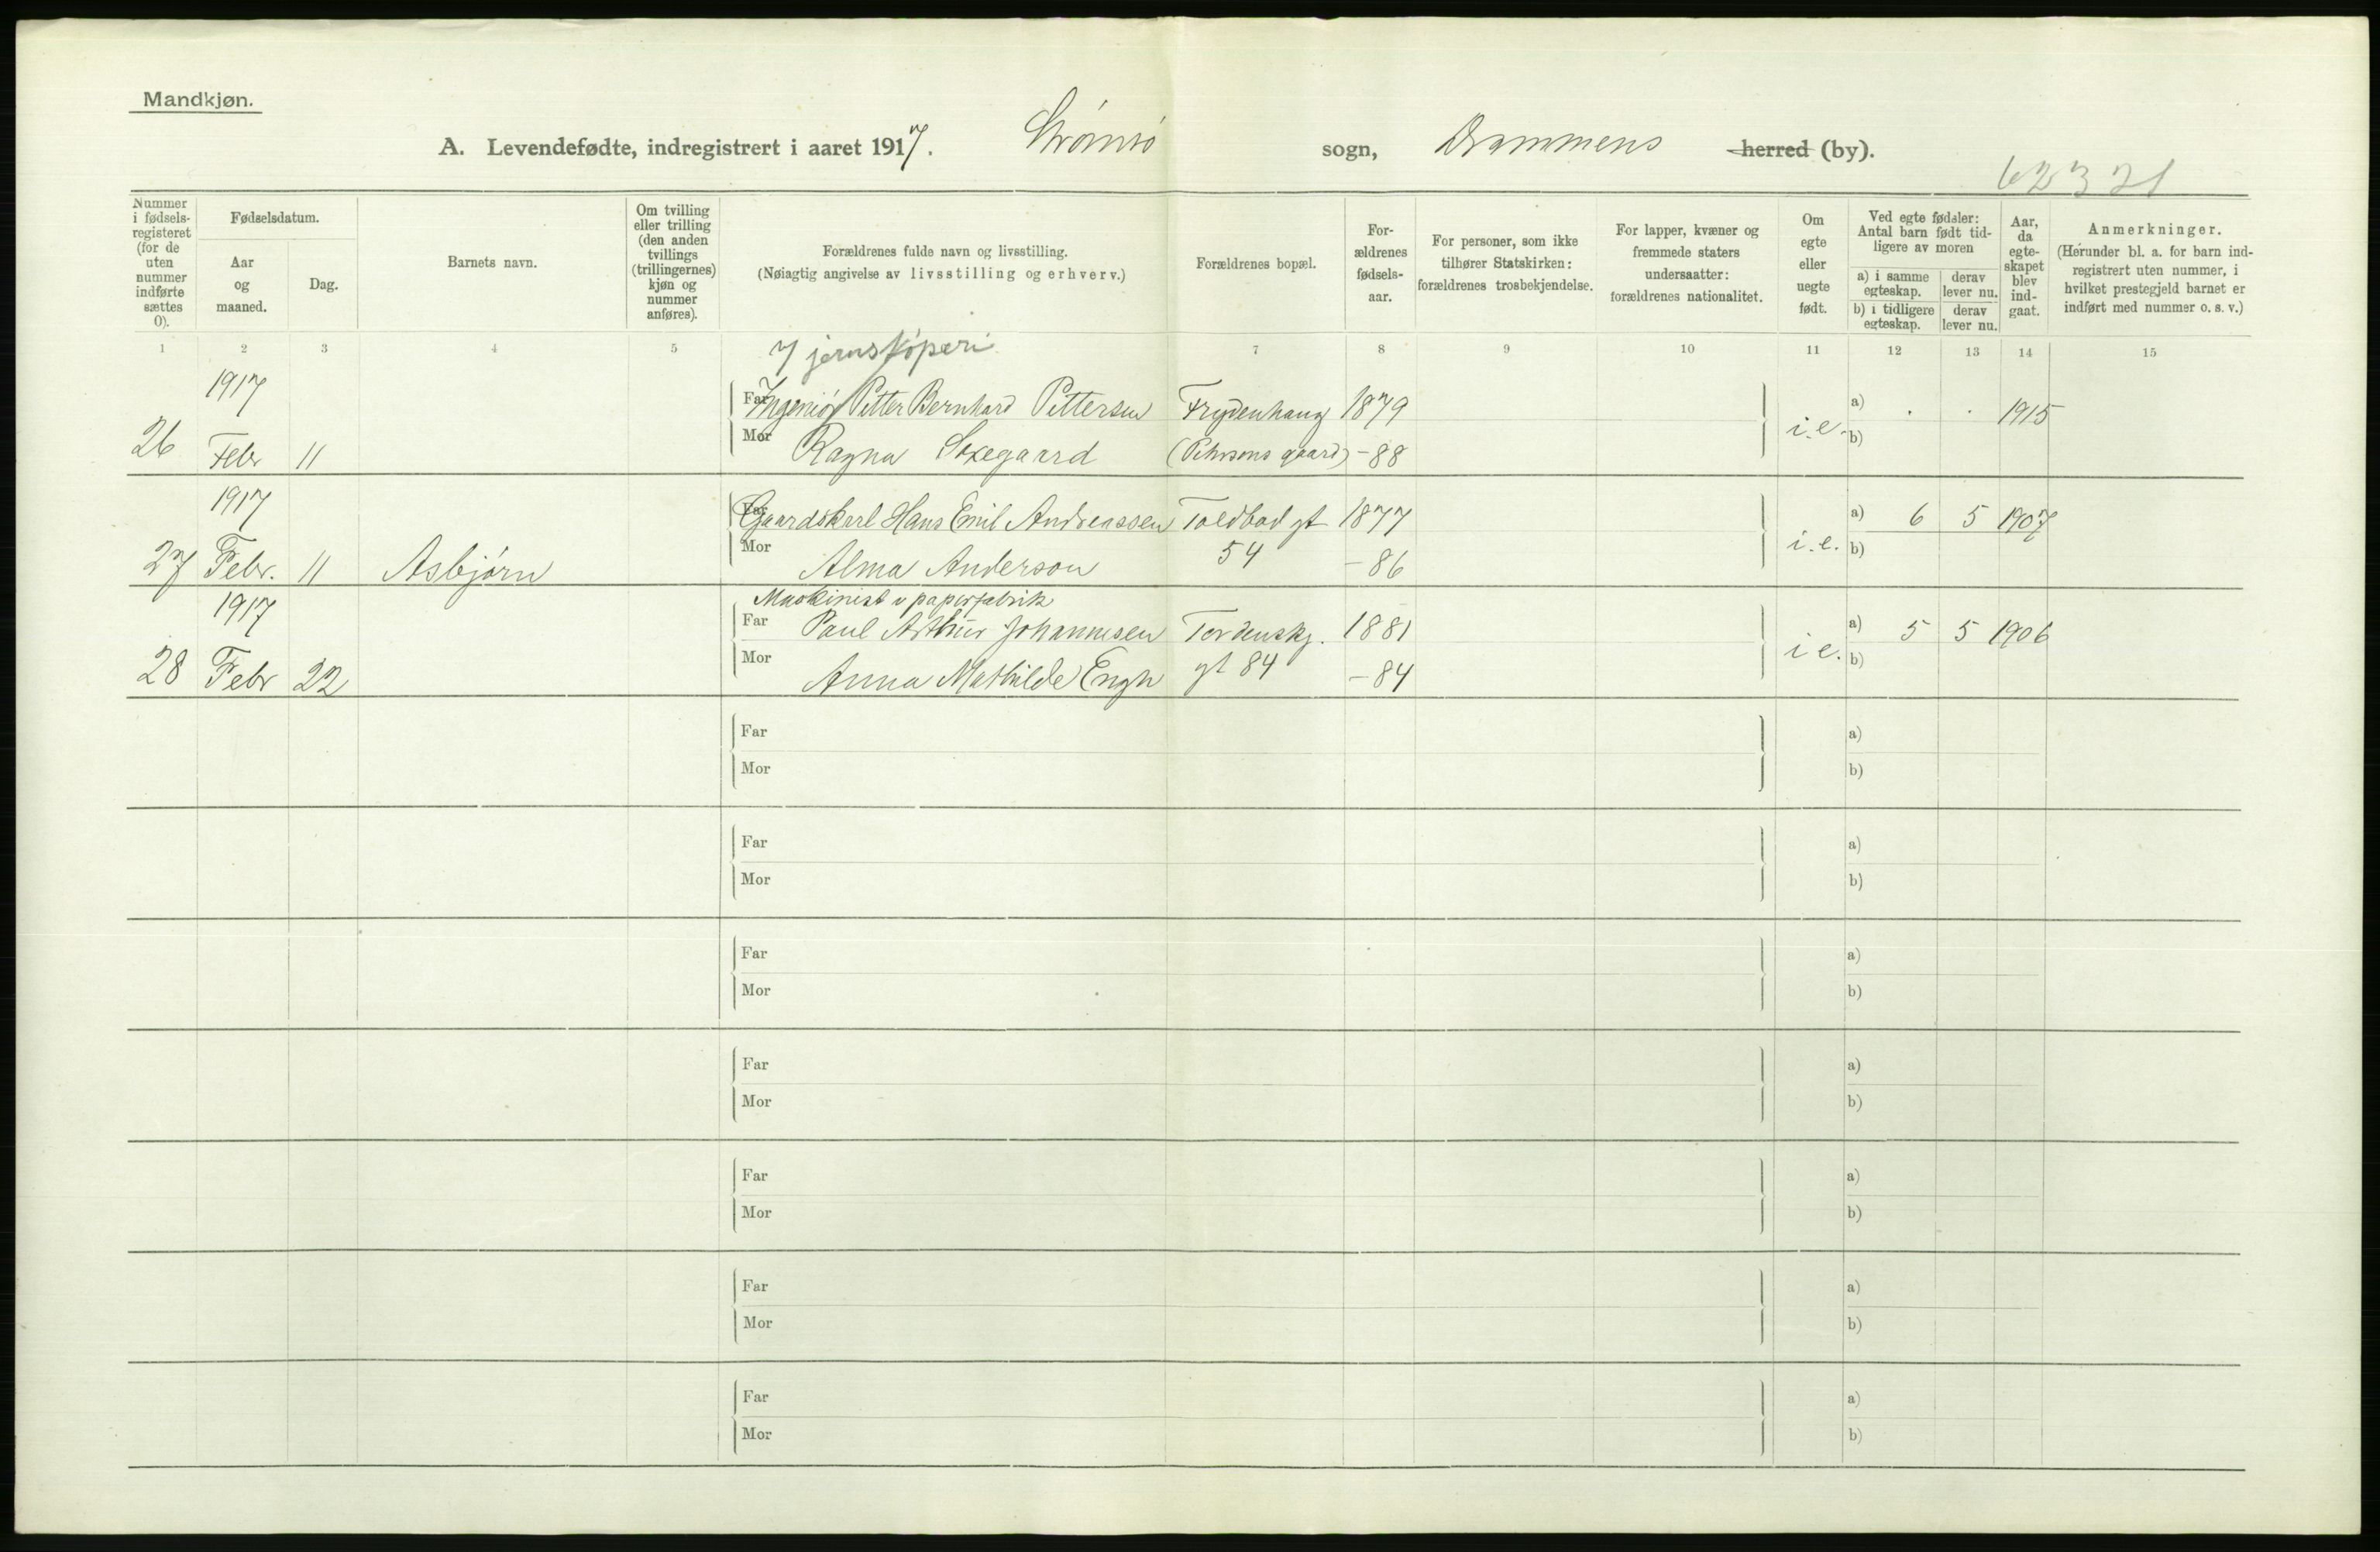 Mandkjøn.
A. Levendefødte, indregistrert i aaret 1917. Strømsø sogn, Drammens herred (by).
62321
Nummer i fødselsregisteret (for de uten nummer indførte sættes 0).
Fødselsdatum.
Aar og maaned.
Dag.
Barnets navn.
Om tvilling eller trilling (den anden tvillings (trillingernes) kjøn og nummer anføres).
Forældrenes fulde navn og livsstilling.
(Nøiagtig angivelse av livsstilling og erhverv.)
Forældrenes bopæl.
Forældrenes fødselsaar.
For personer, som ikke tilhører Statskirken: forældrenes trosbekjendelse.
For lapper, kvæner og fremmede staters undersaatter: forældrenes nationalitet.
Om egte eller uegte født.
Ved egte fødsler: Antal barn født tidligere av moren
a) i samme egteskap. derav lever nu.
b) i tidligere egteskap. derav lever nu.
Aar, da egteskapet blev indgaat.
Anmerkninger.
(Herunder bl. a. for barn indregistrert uten nummer, i hvilket prestegjeld barnet er indført med nummer o. s. v.)
1 2 3 4 5 7 8 9 10 11 12 13 14 15
jernstøperi
1917 Far Ingeniør Petter Bernhard Pettersen Frydenhaug 1879 a) . . 1915
26 Febr 11 Mor Ragna gaard) -88 i.e. b)
1917 Far Gaardskarl Hans Emil Andreassen Toldbod gt 1877 a) 6 5 1907
27 Febr. 11 Asbjørn Mor Alma Anderson 54 -86 i.e. b)
Maskinist v papirfabrik
1917 Far Paul Arthur Johannesen Tordenskj. 1881 a) 5 5 1906
28 Febr 22 Mor Anna Mathilde Engh gt 84 -84 i e. b)
Far a)
Mor b)
Far a)
Mor b)
Far a)
Mor b)
Far a)
Mor b)
Far a)
Mor b)
Far a)
Mor b)
Far a)
Mor b)